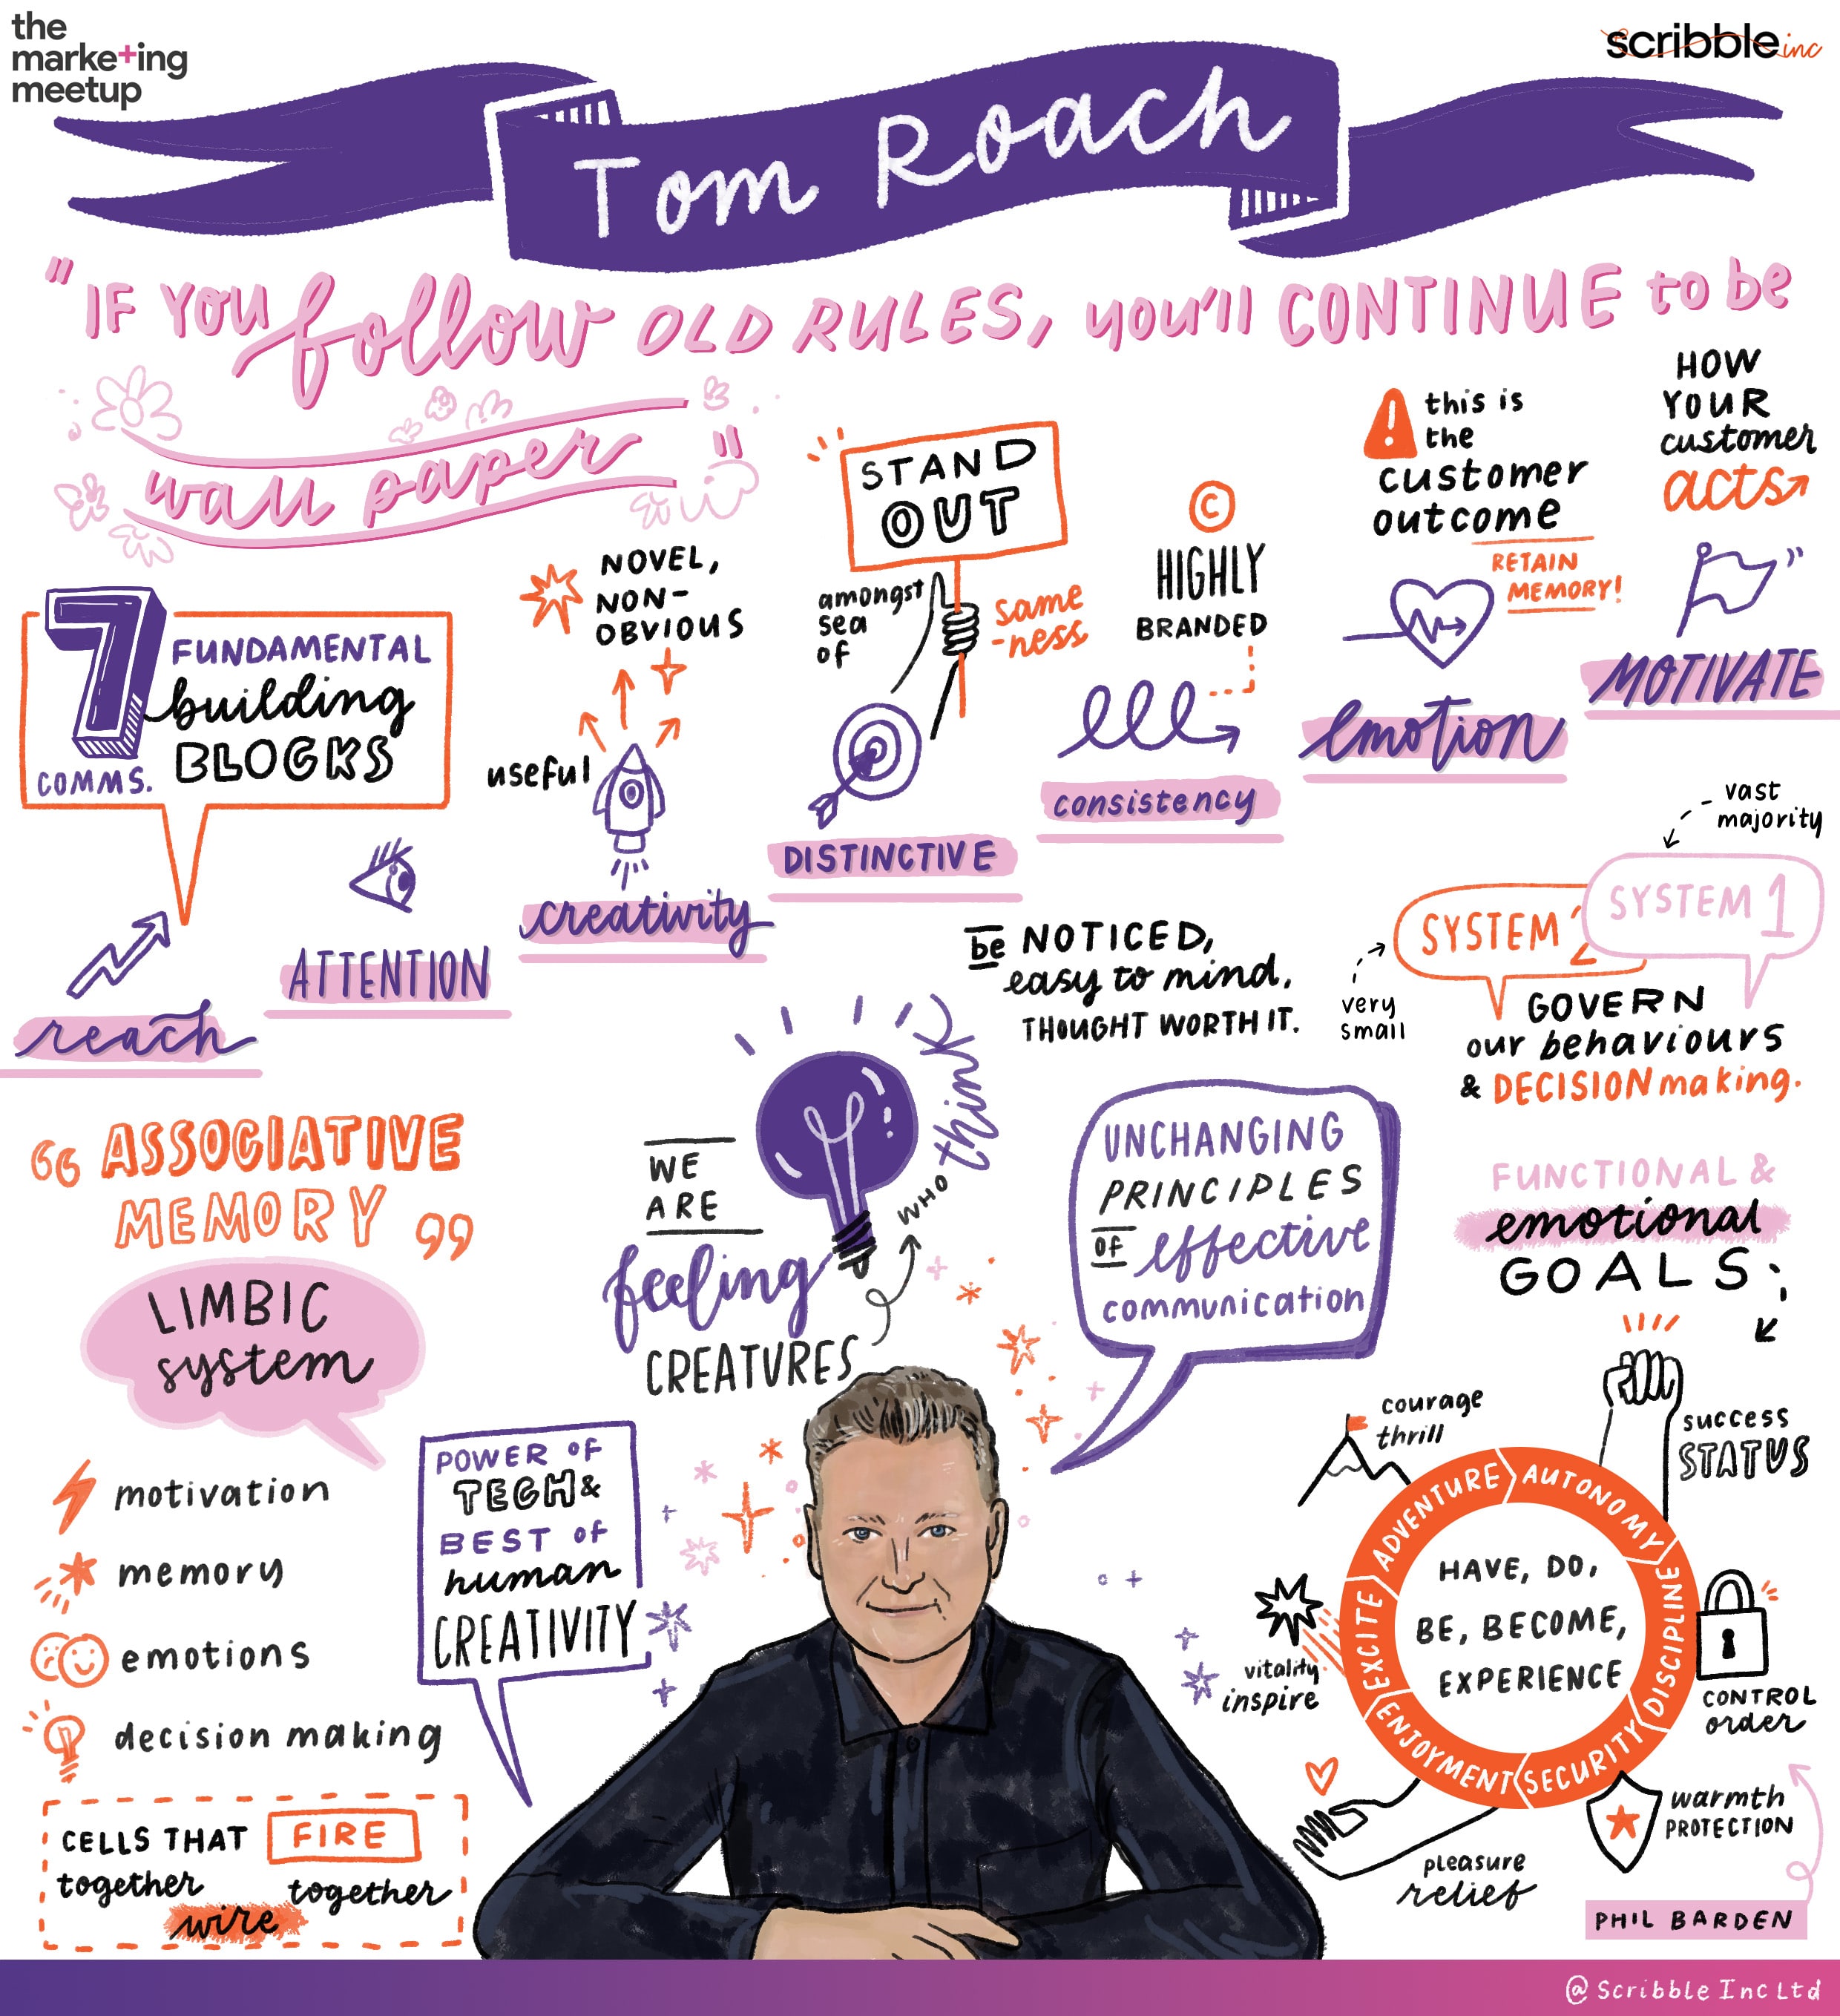 the
marke+ing
meetup
scribble inc
Tom Roach
"IF YOU follow OLD RULES, you'll CONTINUE to be
wall paper"
7
COMMS.
FUNDAMENTAL
building
BLOCKS
reach
ATTENTION
NOVEL,
NON-
OBVIOUS
useful
creativity
STAND
OUT
amongst
sea
of
same
-ness
DISTINCTIVE
©
HIGHLY
BRANDED
consistency
! this is
the
customer
outcome
RETAIN
MEMORY!
emotion
HOW
YOUR
customer
acts
MOTIVATE
be NOTICED,
easy to mind,
THOUGHT WORTH IT.
vast
majority
SYSTEM 1
SYSTEM 2
very
small
GOVERN
our behaviours
& DECISION making.
"ASSOCIATIVE
MEMORY"
LIMBIC
system
motivation
memory
emotions
decision making
CELLS THAT FIRE
together
wire
together
WE
ARE
feeling
CREATURES
WHO
think
POWER OF
TECH &
BEST OF
human
CREATIVITY
UNCHANGING
PRINCIPLES
OF effective
communication
FUNCTIONAL &
emotional
GOALS
courage
thrill
success
STATUS
ADVENTURE
AUTONOMY
DISCIPLINE
SECURITY
ENJOYMENT
EXCITE
HAVE, DO,
BE, BECOME,
EXPERIENCE
vitality
inspire
CONTROL
order
warmth
PROTECTION
pleasure
relief
PHIL BARDEN
@ Scribble Inc Ltd